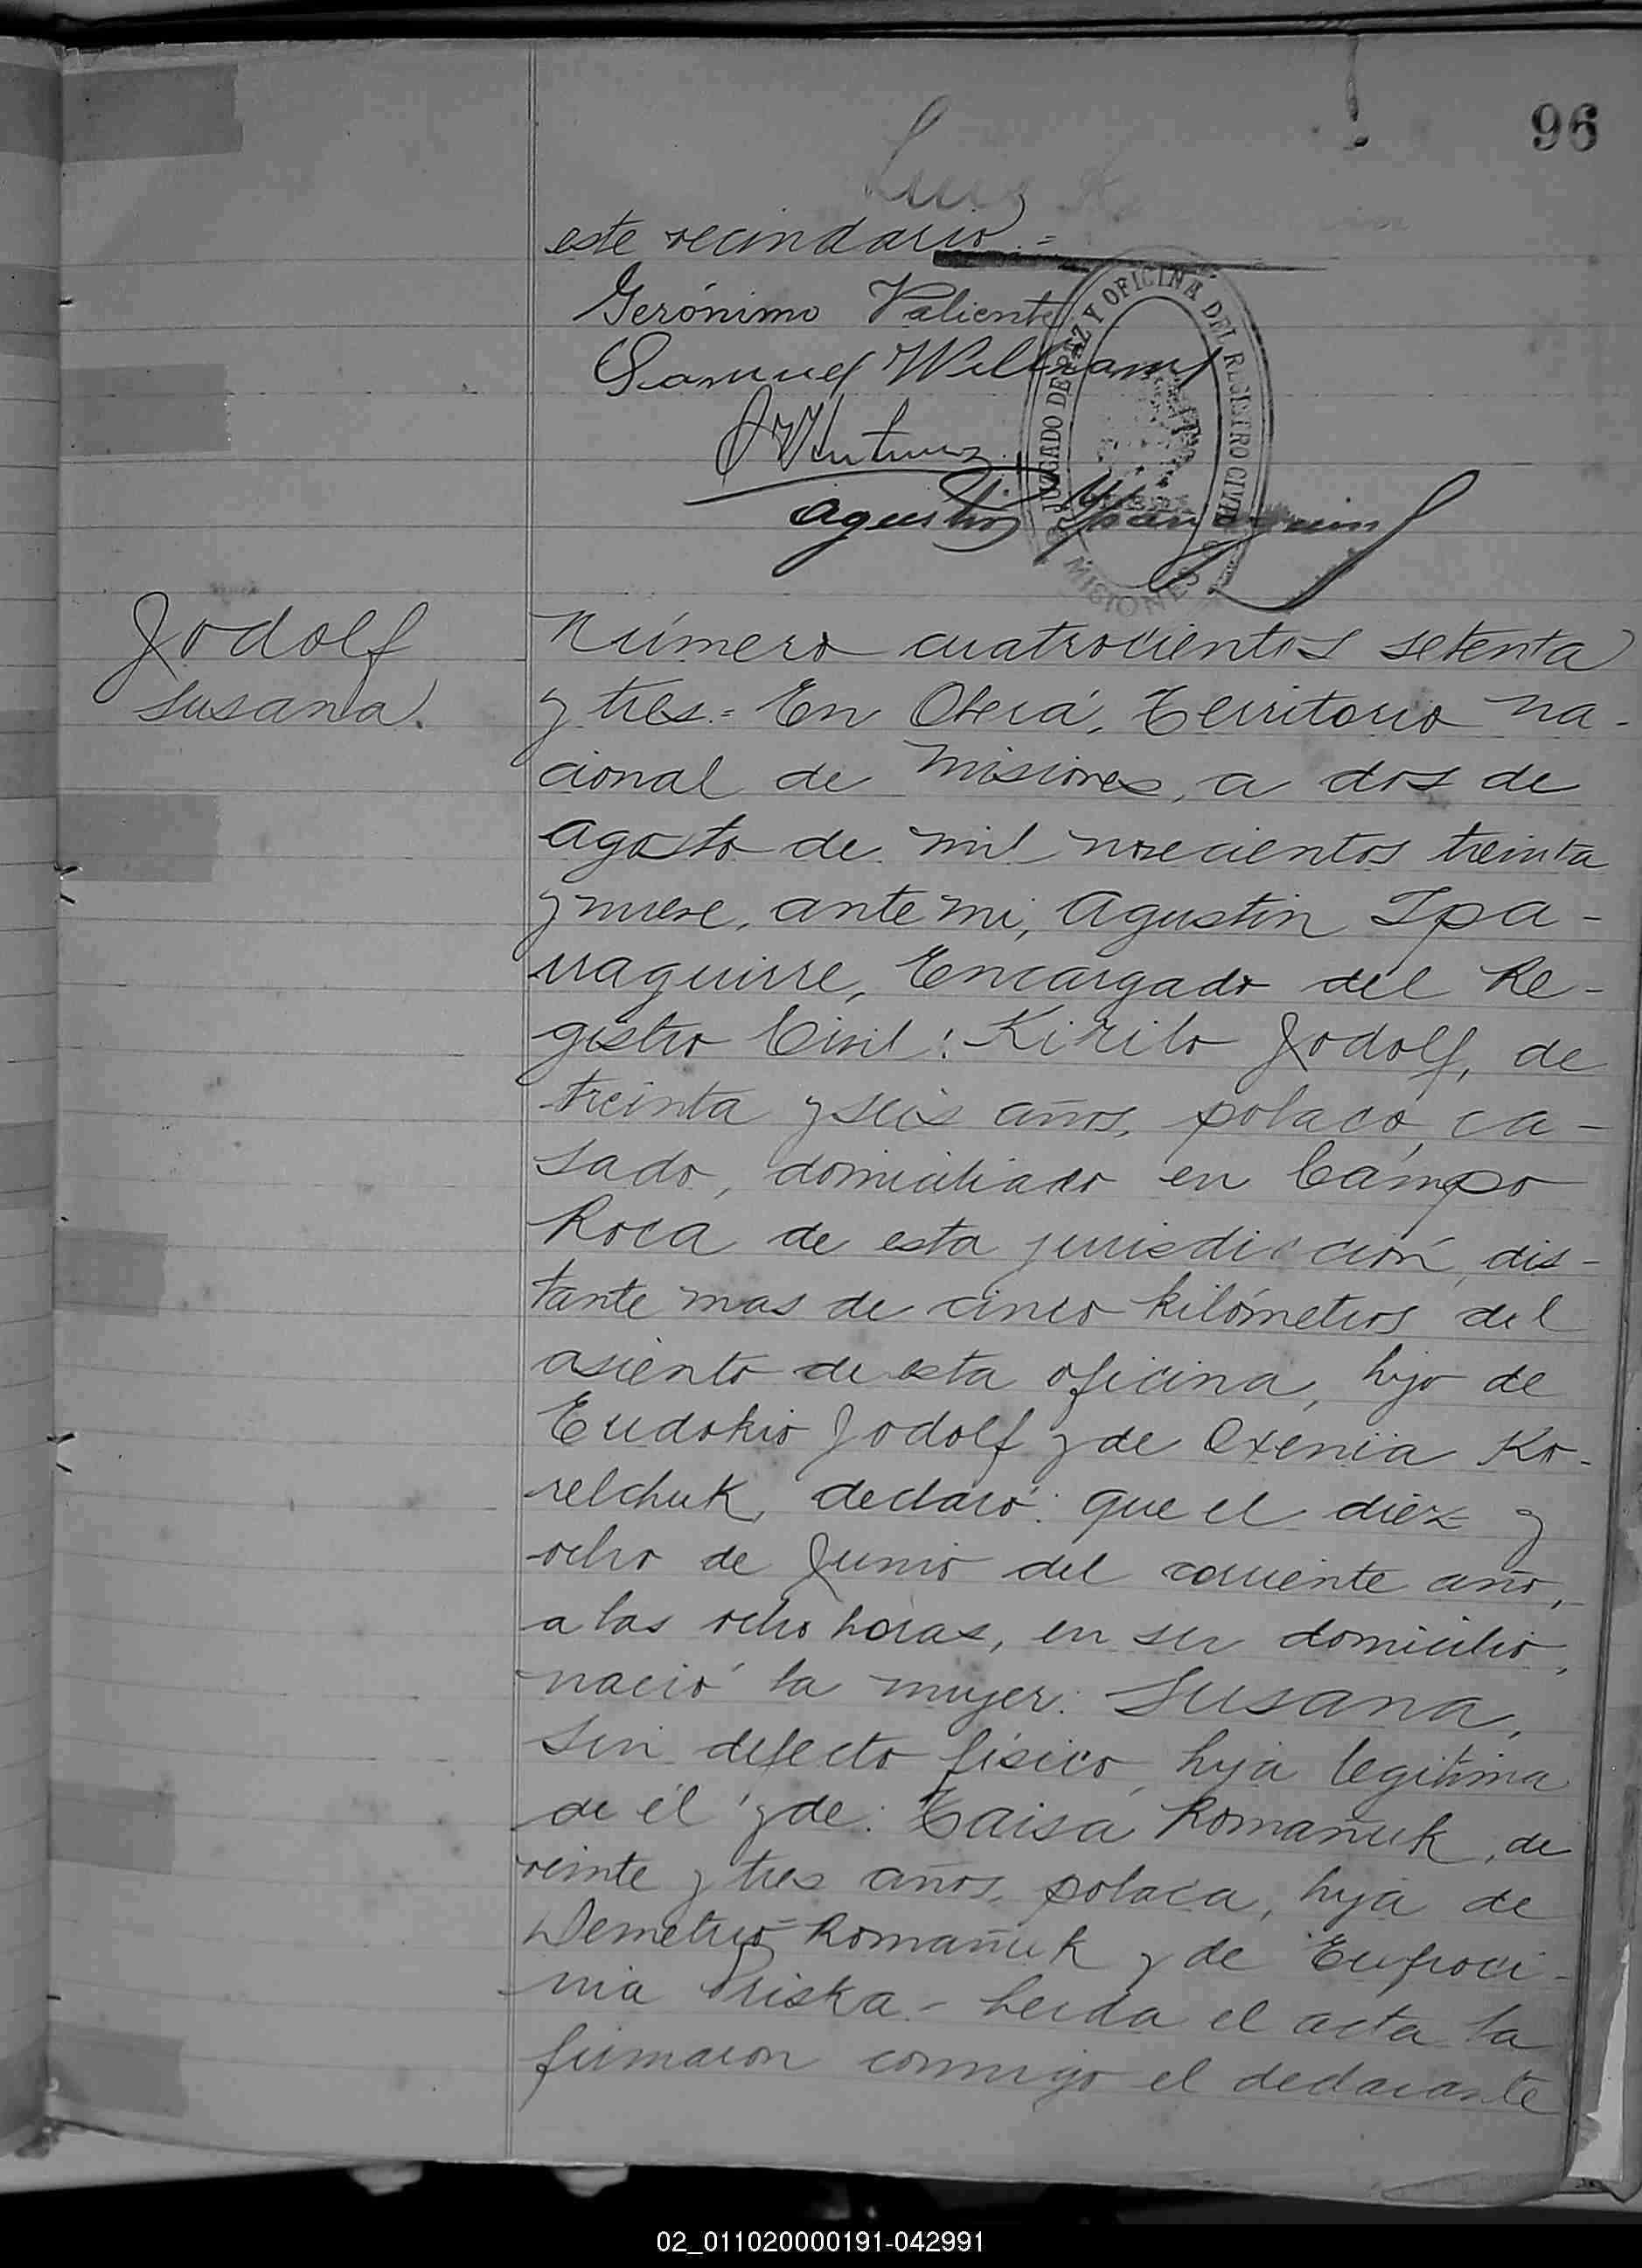 96
este vecindario.=
Gerónimo Valiente
Samuel Williams
JUZGADO DE PAZ Y OFICINA DEL REGISTRO CIVIL
MISIONES
Agustin
Jodolf
Susana.
Número cuatrocientos setenta
y tres.= En Oberá, Territorio Na-
cional de Misiones, a dos de
Agosto de mil novecientos treinta
y nueve, ante mi, Agustin Ipa-
rraguirre, Encargado del Re-
gistro Civil: Kirilo Jodolf, de
treinta y seis años, polaco, ca-
sado, domiciliado en Campo
Roca de esta jurisdicción, dis-
tante mas de cinco kilómetros del
asiento de esta oficina, hijo de
Eudokio Jodolf y de Oxenia Ko-
relchuk, declaró: que el diez y
ocho de Junio del corriente año,
a las ocho horas, en su domicilio,
nació la mujer: Susana,
sin defecto físico, hija legítima
de él y de: Taisa Romañuk, de
veinte y tres años, polaca, hija de
Demetrio Romañuk y de Eufroci-
nia Priska.- Leida el acta la
firmaron conmigo el declarante
02_011020000191-042991